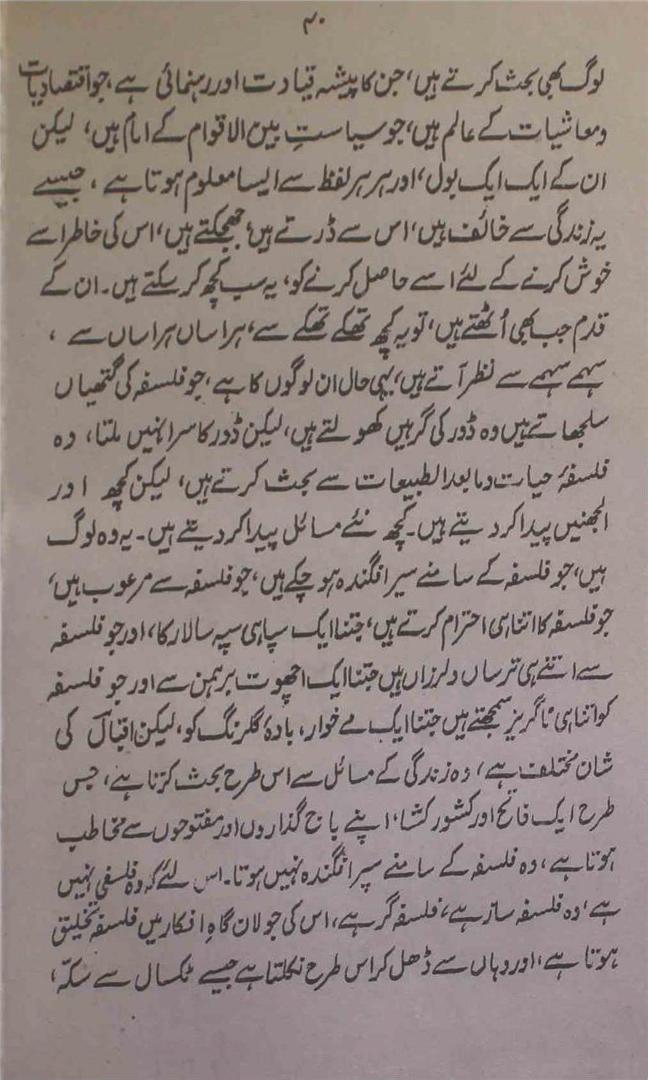 ۴۰
لوگ بھی بحث کرتے ہیں، جن کا پیشہ قیادت اور رہنمائی ہے، جو اقتصادیات
و معاشیات کے عالم ہیں، جو سیاستِ بین الاقوام کے امام ہیں، لیکن
ان کے ایک ایک بول، اور ہر ہر لفظ سے ایسا معلوم ہوتا ہے، جیسے
یہ زندگی سے خائف ہیں، اس سے ڈرتے ہیں، جھجکتے ہیں، اس کی خاطر اسے
خوش کرنے کے لئے اسے حاصل کرنے کو، یہ سب کچھ کر سکتے ہیں۔ ان کے
قدم جب بھی اُٹھتے ہیں، تو یہ کچھ تھکے تھکے سے، ہراساں ہراساں سے ،
سہمے سہمے سے نظر آتے ہیں، یہی حال ان لوگوں کا ہے، جو فلسفہ کی گتھیاں
سلجھاتے ہیں وہ ڈور کی گرہیں کھولتے ہیں، لیکن ڈور کا سرا نہیں ملتا، وہ
فلسفۂ حیات و ما بعد الطبیعات سے بحث کرتے ہیں، لیکن کچھ اور
الجھنیں پیدا کر دیتے ہیں۔ کچھ نئے مسائل پیدا کر دیتے ہیں۔ یہ وہ لوگ
ہیں، جو فلسفہ کے سامنے سپر افگندہ ہو چکے ہیں، جو فلسفہ سے مرعوب ہیں،
جو فلسفہ کا اتنا ہی احترام کرتے ہیں، جتنا ایک سپاہی سپہ سالار کا، اور جو فلسفہ
سے اتنے ہی ترساں و لرزاں ہیں جتنا ایک اچھوت برہمن سے اور جو فلسفہ
کو اتنا ہی ناگریز سمجھتے ہیں جتنا ایک مے خوار، بادۂ گلرنگ کو، لیکن اقبالؔ کی
شان مختلف ہے، وہ زندگی کے مسائل سے اس طرح بحث کرتا ہے، جس
طرح ایک فاتح اور کشور کشا، اپنے باج گذاروں اور مفتوحوں سے مخاطب
ہوتا ہے، وہ فلسفہ کے سامنے سپر افگندہ نہیں ہوتا۔ اس لئے کہ وہ فلسفی نہیں
ہے، وہ فلسفہ ساز ہے، فلسفہ گر ہے، اس کی جولان گاہِ افکار میں فلسفہ تخلیق
ہوتا ہے، اور وہاں سے ڈھل کر اس طرح نکلتا ہے جیسے ٹکسال سے سکّہ،